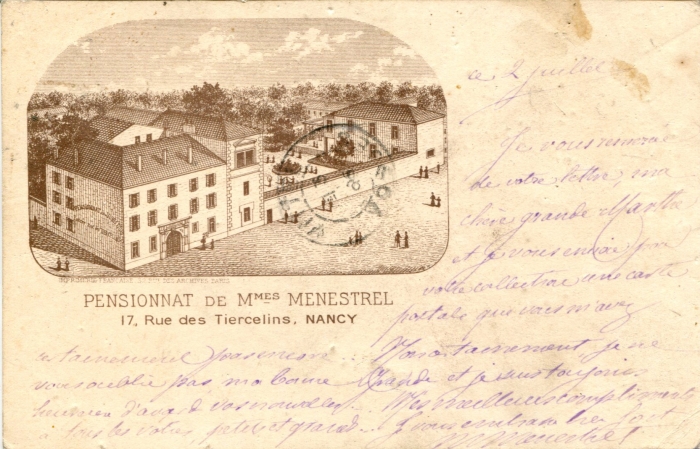 ce 2 juillet
Je vous remercie
de votre lettre, ma
chère grande Marthe
et je vous envoie pour
votre collection une carte
postale que vous n'avez
PENSIONNAT DE MMES MENESTREL
17, Rue des Tiercelins, NANCY
certainement pas encore
Non certainement, je ne
vous oublie pas ma bonne
Grande et je suis toujours
heureuse d'avoir de vos nouvelles.
Mes meilleurs compliments
à tous les votres, petits et grands
Je vous embrasse bien fort
Menestrel